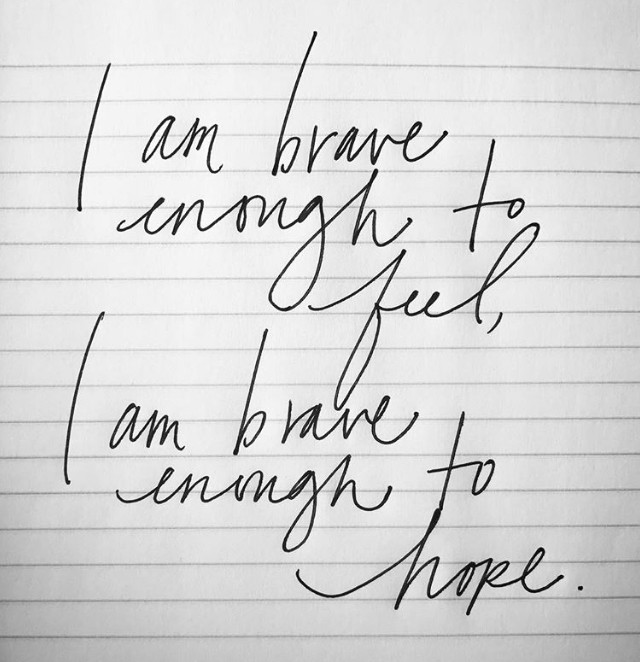 I am brave
enough to
feel,
I am brave
enough to
hope.